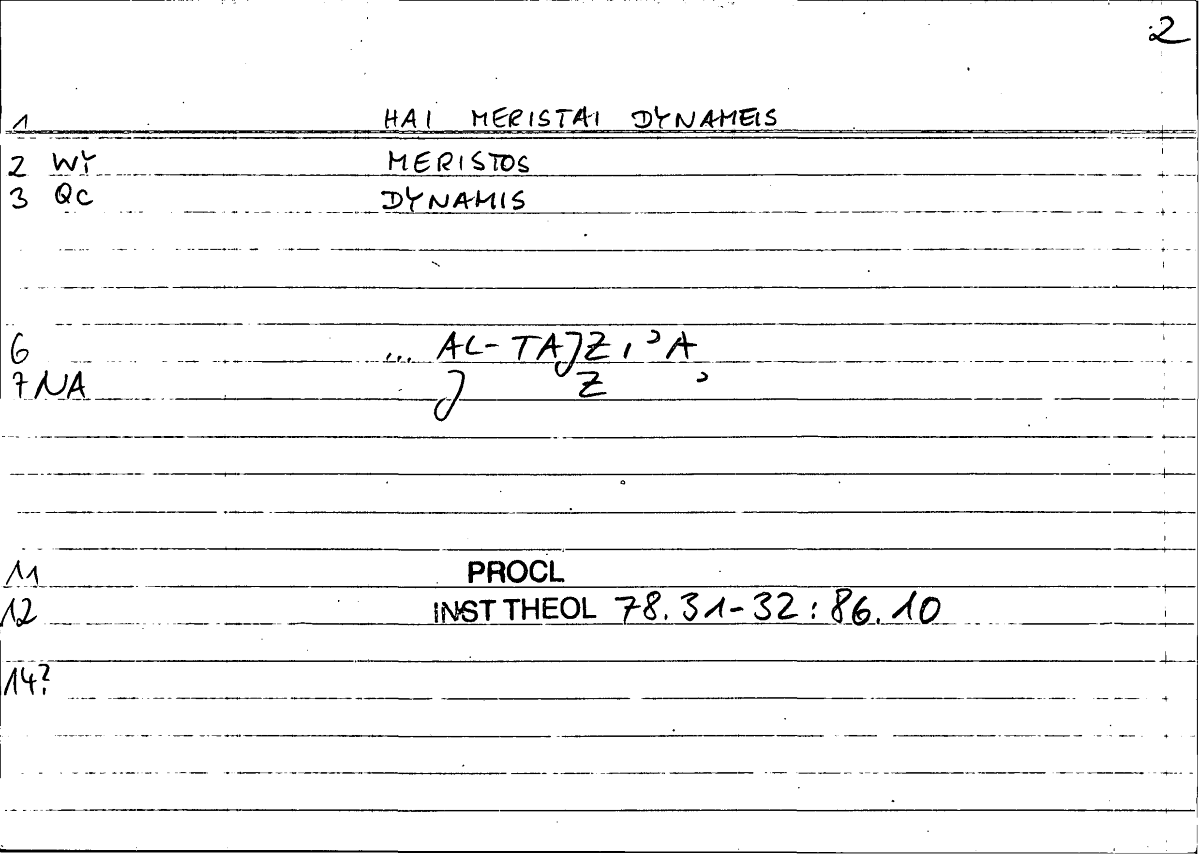 2
1 HAI MERISTAI DYNAMEIS
2 WY MERISTOS
3 QC DYNAMIS
6 ... AL-TAJZIʾA
7 NA J Z ʾ
11 PROCL
12 INST THEOL 78.31-32:86.10
14?